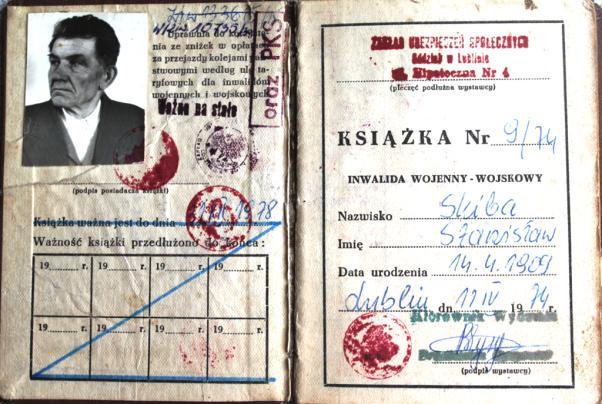 Uprawnia do korzysta-
nia ze zniżek w opłatach
za przejazdy kolejami pań-
stwowymi według ulg ta-
ryfowych dla inwalidów
wojennych i wojskowych
oraz PKS
Ważne na stałe
(podpis posiadacza książki)
Książka ważna jest do dnia 1978
Ważność książki przedłużono do końca:
19 r. 19 r. 19 r. 19 r.
19 r. 19 r. 19 r. 19 r.
ZAKŁAD UBEZPIECZEŃ SPOŁECZNYCH
Oddział w Lublinie
ul. Hipoteczna Nr 4
(pieczęć podłużna wystawcy)
KSIĄŻKA Nr 9/74
INWALIDA WOJENNY-WOJSKOWY
Nazwisko Skiba
Imię Stanisław
Data urodzenia 14.4.1909
Lublin dn. 11 IV 1974 r.
Kierownik Wydziału
(podpis wystawcy)